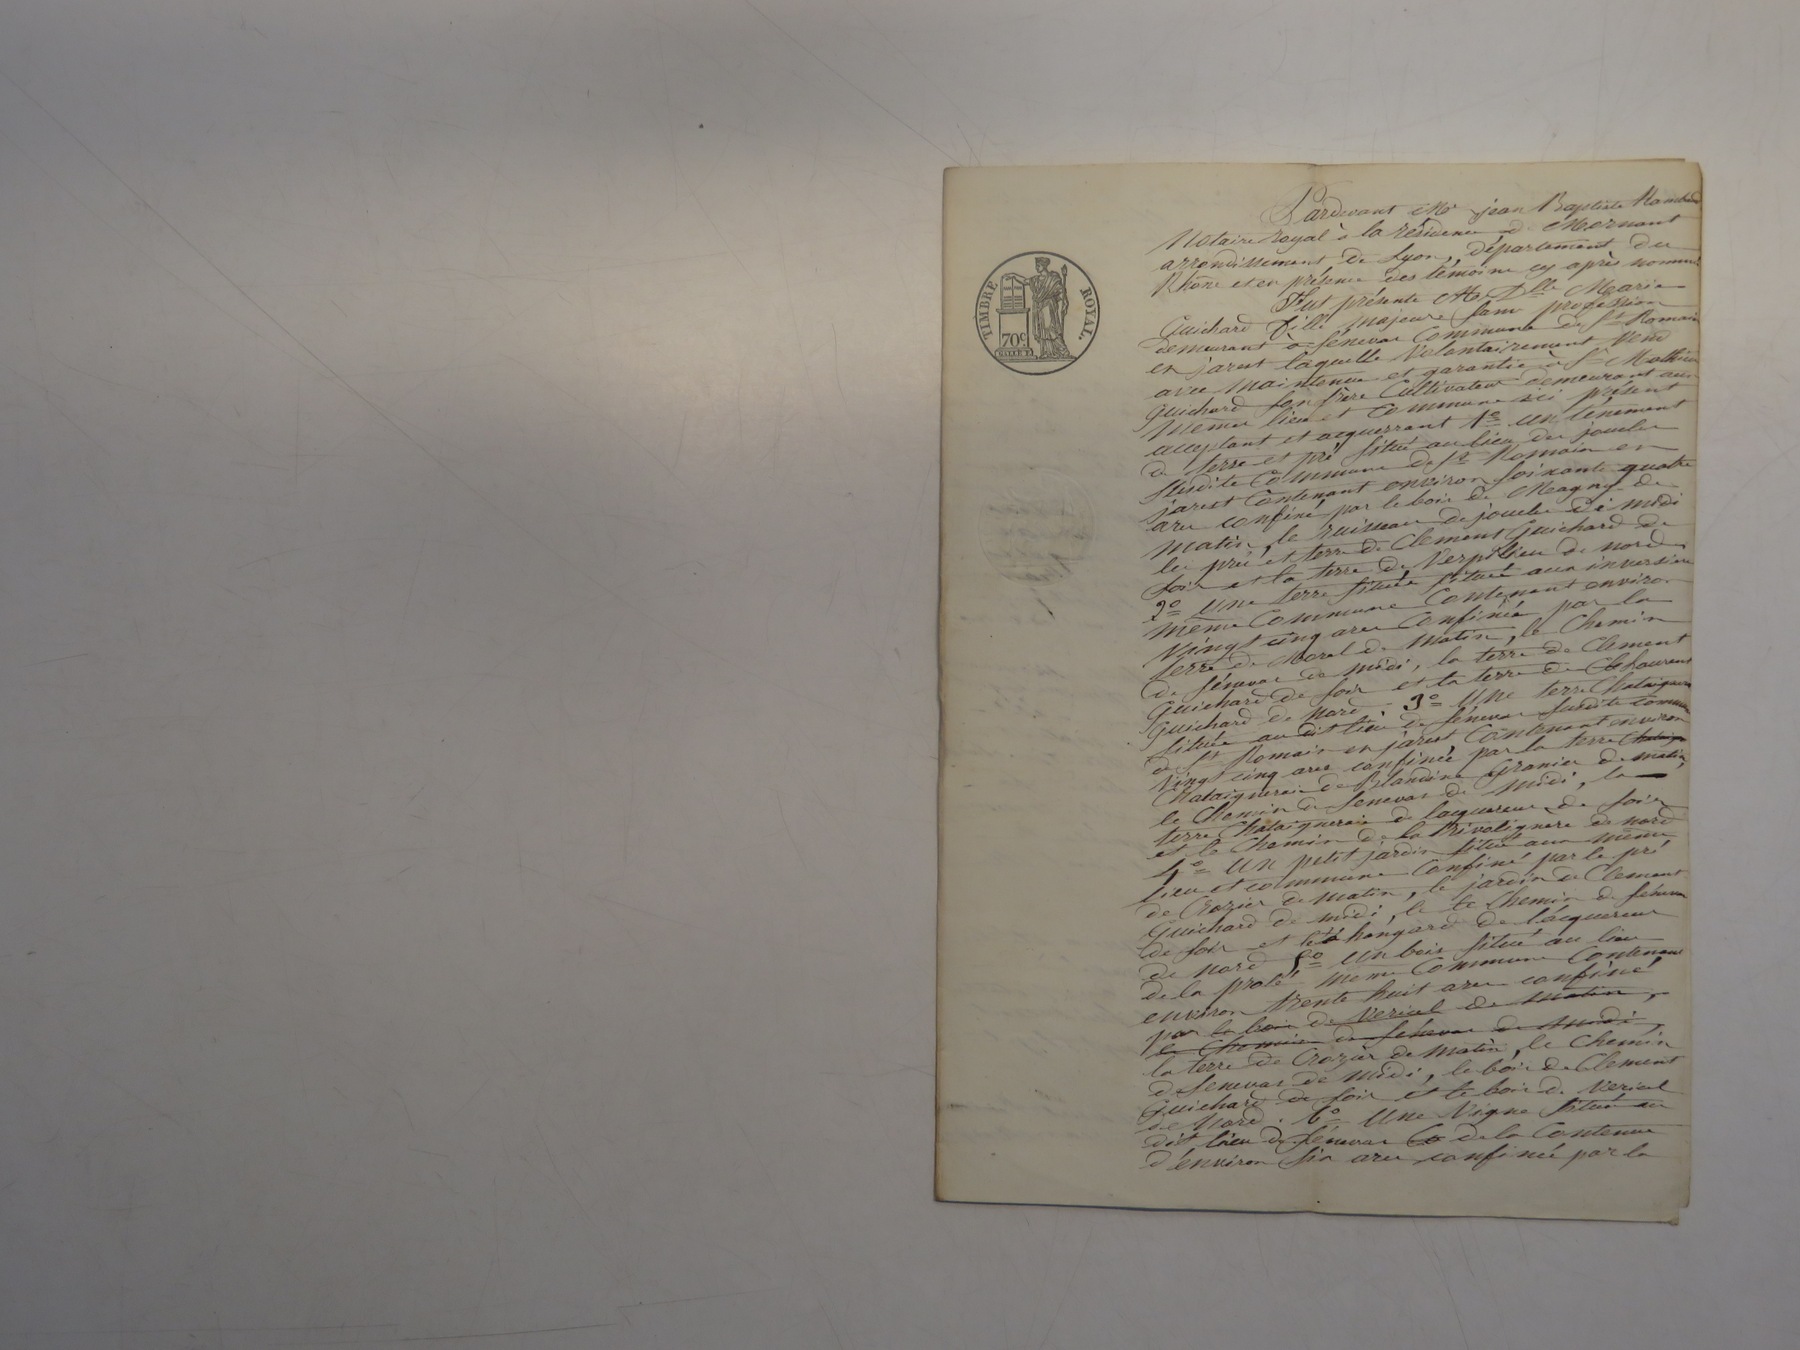 TIMBRE ROYAL.
70c
Pardevant Me jean Baptiste
Notaire royal à la résidence de Mornant
arrondissement de Lyon, département du
Rhône et en présence des témoins cy après nommés
Fut présente Dlle Marie
Guichard fille majeure sans profession
demeurant à Senevas Commune de St Romain
en jarest laquelle Volontairement Vend
avec Maintenue et garantie à Sr Mathieu
Guichard son frère Cultivateur demeurant aux
Memes lieu et Commune ici présent
acceptant et acquerrant 1o un tènement
de terre et pré situé au lieu du jouclas
Susdite Commune de St Romain en
jarest Contenant environ soixante quatre
ares confiné par le bois de Magny de
Matin, le ruisseau de jouclas de midi
les pré et terre de Clement Guichard de
soir et la terre de Verpilieu de nord
2o Une terre située située aux inversins
même Commune Contenant environ
Vaingt cinq ares Confinée par la
terre de Morel de Matin, le Chemin
de Sénevas de midi, la terre de Clement
Guichard de soir et la terre de Laurent
Guichard de Nord. 3o Une terre Chataigneraie
située au dit lieu de Sénevas Susdite Commune
de St Romain en jarest Contenant environ
Vingt cinq ares confinée par la terre
Chataigneraie de Blandine Granier de matin,
le Chemin de Senevas de Midi, la
terre Chataigneraie de lacquereur de soir
et le Chemin de la Rivolignère de nord
4o Un petit jardin situé aux même
lieu et commune Confiné par le pré
de Crozier de Matin, le jardin de Clement
Guichard de midi, le Chemin de Sénevas
de soir et hongard de l'acquereur
de Nord 5o Un bois situé au lieu
de la même Commune Contenant
environ trente huit ares confiné
par le bois de Vericel de Matin,
le Chemin de Senevas de Midi
la terre de Crozier de Matin, le Chemin
de Senevas de Midi, le bois de Clement
Guichard de soir et le bois de Vericel
de Nord. 6o Une Vigne située au
dit lieu de Sénevas de la Contenue
d'environ six ares confinée par la